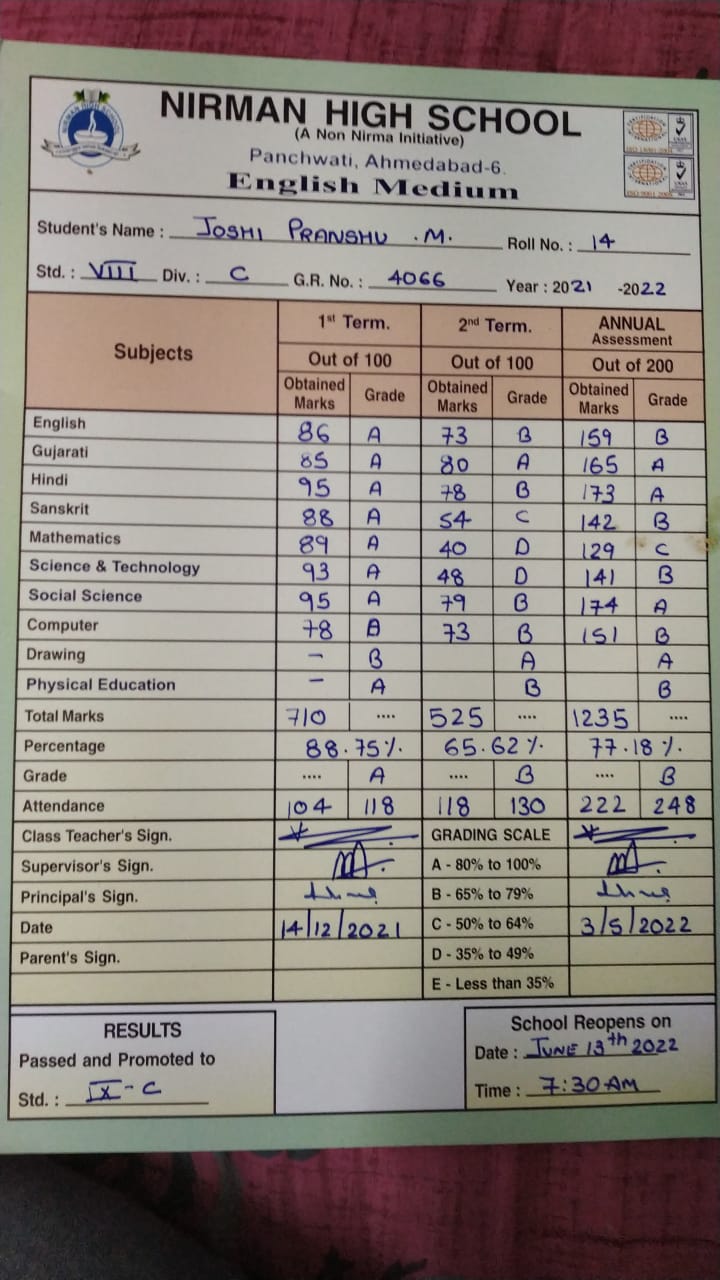 NIRMAN HIGH SCHOOL
(A Non Nirma Initiative)
Panchwati, Ahmedabad-6.
English Medium
Student's Name : JOSHI PRANSHU .M. Roll No. : 14
Std. : VIII Div. : C G.R. No. : 4066 Year : 2021 -2022
Subjects 1st Term. 2nd Term. ANNUAL Assessment
Out of 100 Out of 100 Out of 200
Obtained Marks Grade Obtained Marks Grade Obtained Marks Grade
English 86 A 73 B 159 B
Gujarati 85 A 80 A 165 A
Hindi 95 A 78 B 173 A
Sanskrit 88 A 54 C 142 B
Mathematics 89 A 40 D 129 C
Science & Technology 93 A 48 D 141 B
Social Science 95 A 79 B 174 A
Computer 78 B 73 B 151 B
Drawing - B A A
Physical Education - A B B
Total Marks 710 .... 525 .... 1235 ....
Percentage 88.75% 65.62% 77.18%
Grade .... A .... B .... B
Attendance 104 118 118 130 222 248
Class Teacher's Sign. GRADING SCALE
Supervisor's Sign. A - 80% to 100%
Principal's Sign. B - 65% to 79%
Date 14/12/2021 C - 50% to 64% 3/5/2022
Parent's Sign. D - 35% to 49%
E - Less than 35%
RESULTS
Passed and Promoted to
Std. : IX-C
School Reopens on
Date : JUNE 13th 2022
Time : 7:30 AM